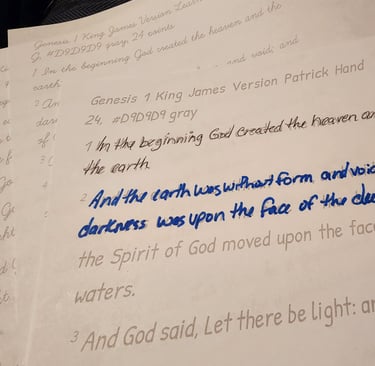 Genesis 1 King James Version
#D9D9D9 gray, 24 points
1 In the beginning God created the heaven and the
earth
and void; and
2 An
Genesis 1 King James Version Patrick Hand
24, #D9D9D9 gray
1 In the beginning God created the heaven an
the earth.
2 And the earth was without form and void
darkness was upon the face of the dee
the Spirit of God moved upon the face
waters.
3 And God said, Let there be light: an